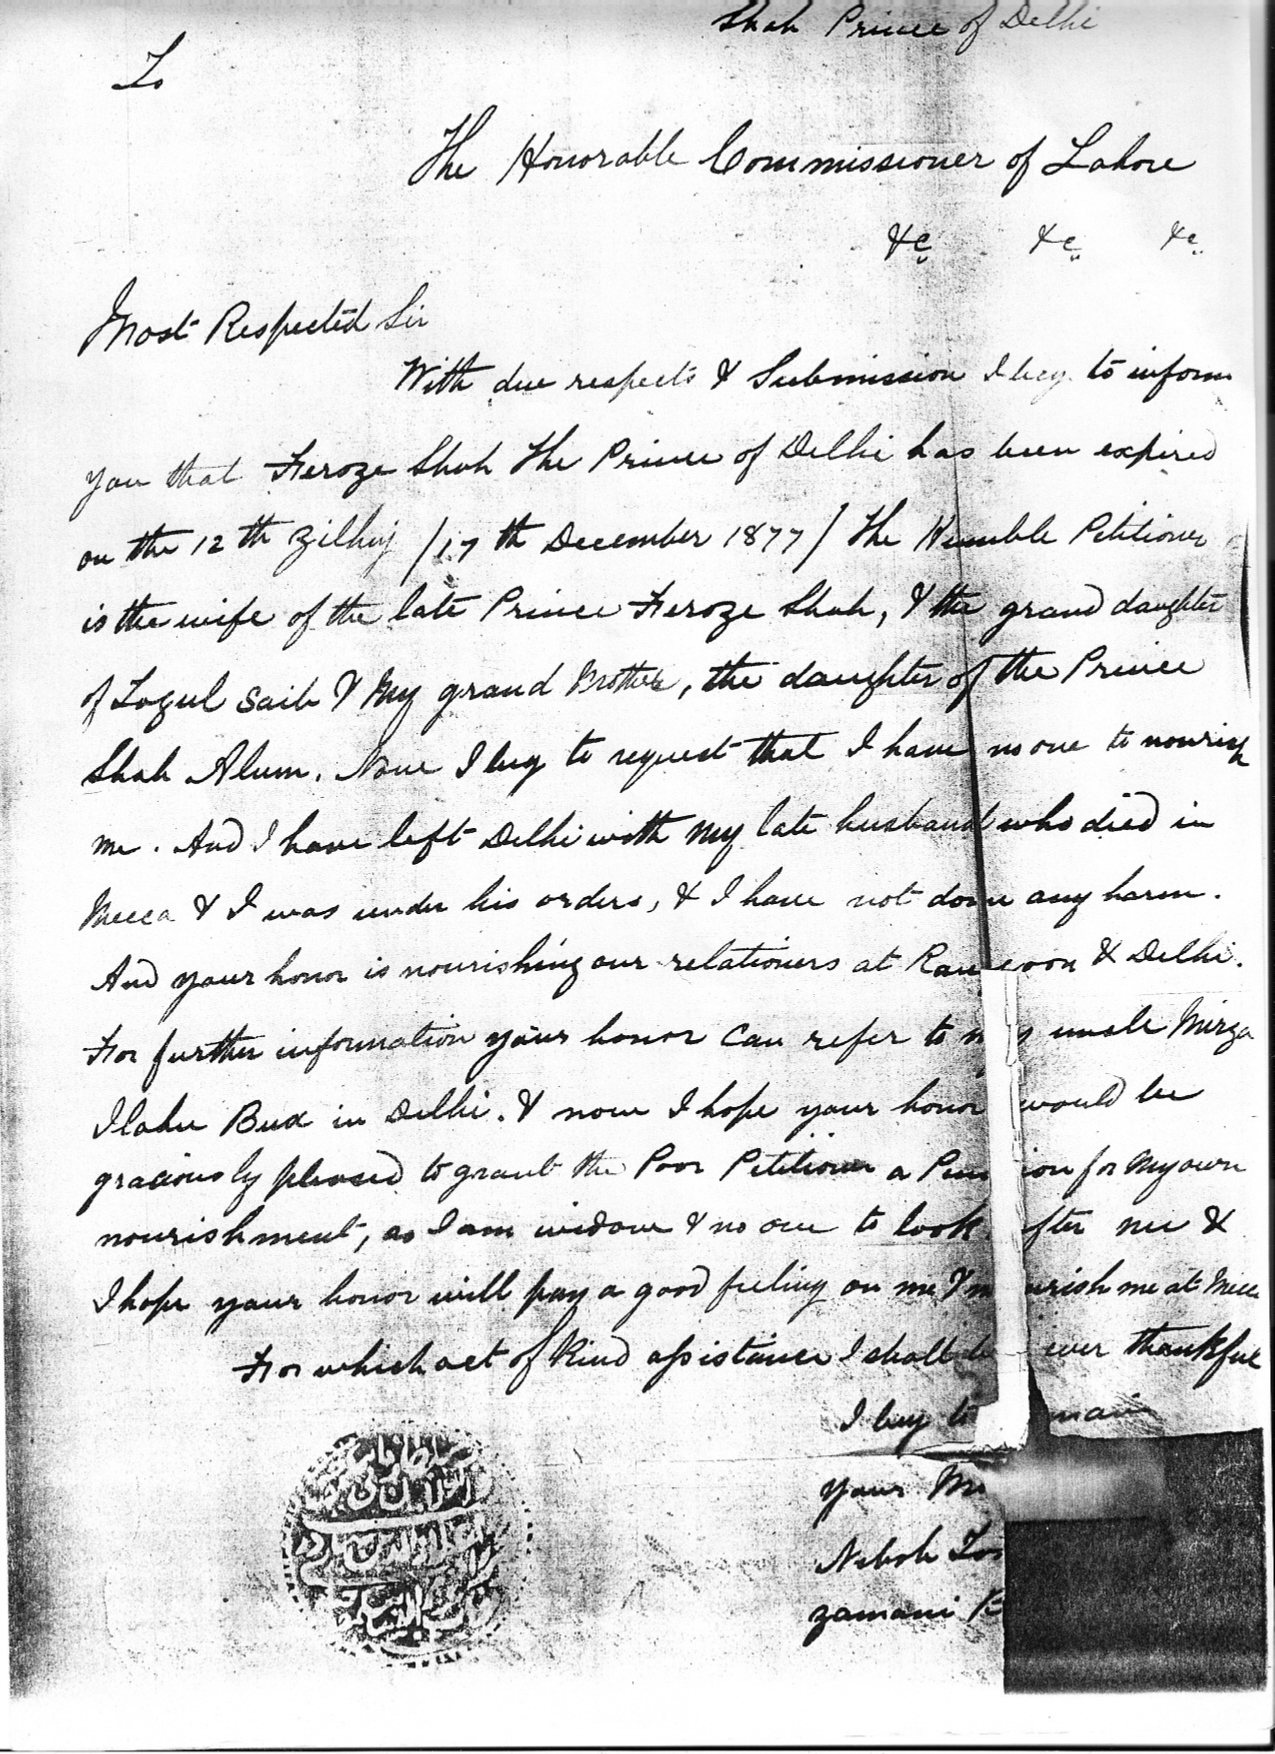 Shah Prince of Delhi
To
The Honorable Commissioner of Lahore
&c &c &c
Most Respected Sir
With due respects & Submission I beg to inform
you that Feroze Shah The Prince of Delhi has been expired
on the 12th Zilhij /17th December 1877/ The Humble Petitioner
is the wife of the late Prince Feroze Shah, & the grand daughter
of Togul Saib & My grand Mother, the daughter of the Prince
Shah Alum. Now I beg to request that I have no one to nourish
me. And I have left Delhi with my late husband who died in
Mecca & I was under his orders, & I have not done any harm.
And your honor is nourishing our relationers at Rangoon & Delhi.
For further information your honor can refer to my uncle Mirza
Ilahee Bux in Delhi. & now I hope your honor would be
graciously pleased to grant the Poor Petitioner a Pension for my own
nourishment, as I am widow & no one to look after me &
I hope your honor will pay a good feeling on me & nourish me at Mecca
For which act of kind assistance I shall be ever thankful
I beg to remain
Your
Zamani